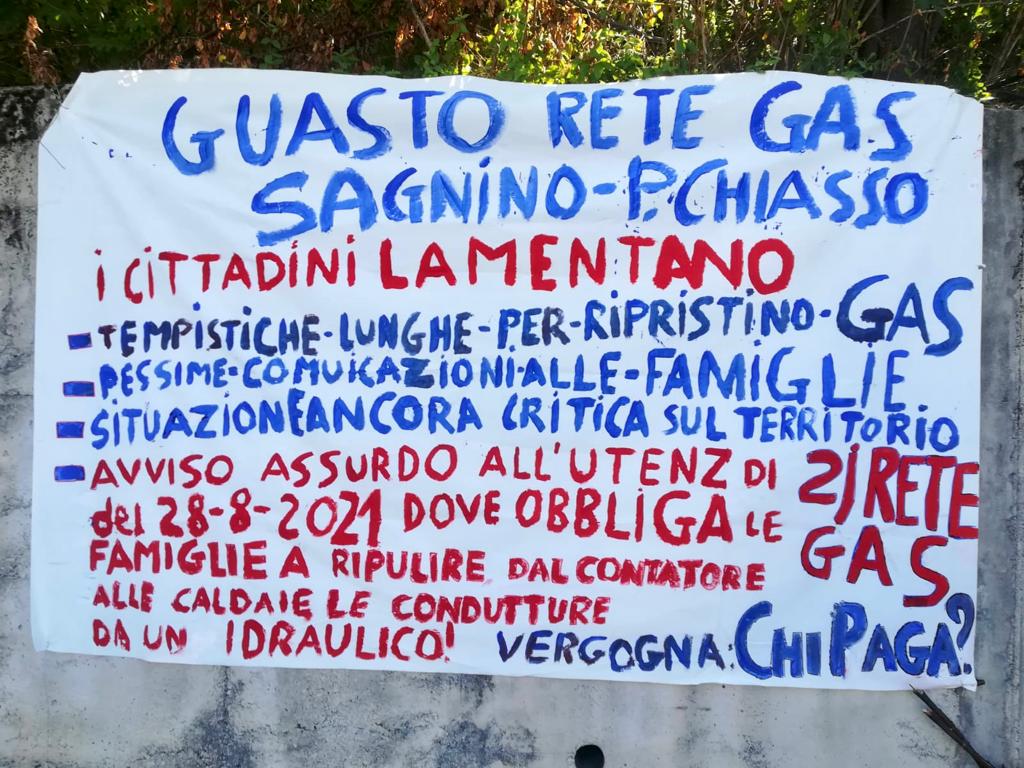 GUASTO RETE GAS
SAGNINO-P.CHIASSO
i CITTADINI LAMENTANO
TEMPISTICHE-LUNGHE-PER-RIPRISTINO-GAS
PESSIME-COMUICAZIONI-ALLE-FAMIGLIE
SITUAZIONE ANCORA CRITICA SUL TERRITORIO
AVVISO ASSURDO ALL'UTENZ DI 2i RETE GAS
del 28-8-2021 DOVE OBBLIGA LE
FAMIGLIE A RIPULIRE DAL CONTATORE
ALLE CALDAIE LE CONDUTTURE
DA UN IDRAULICO!
VERGOGNA: CHI PAGA?